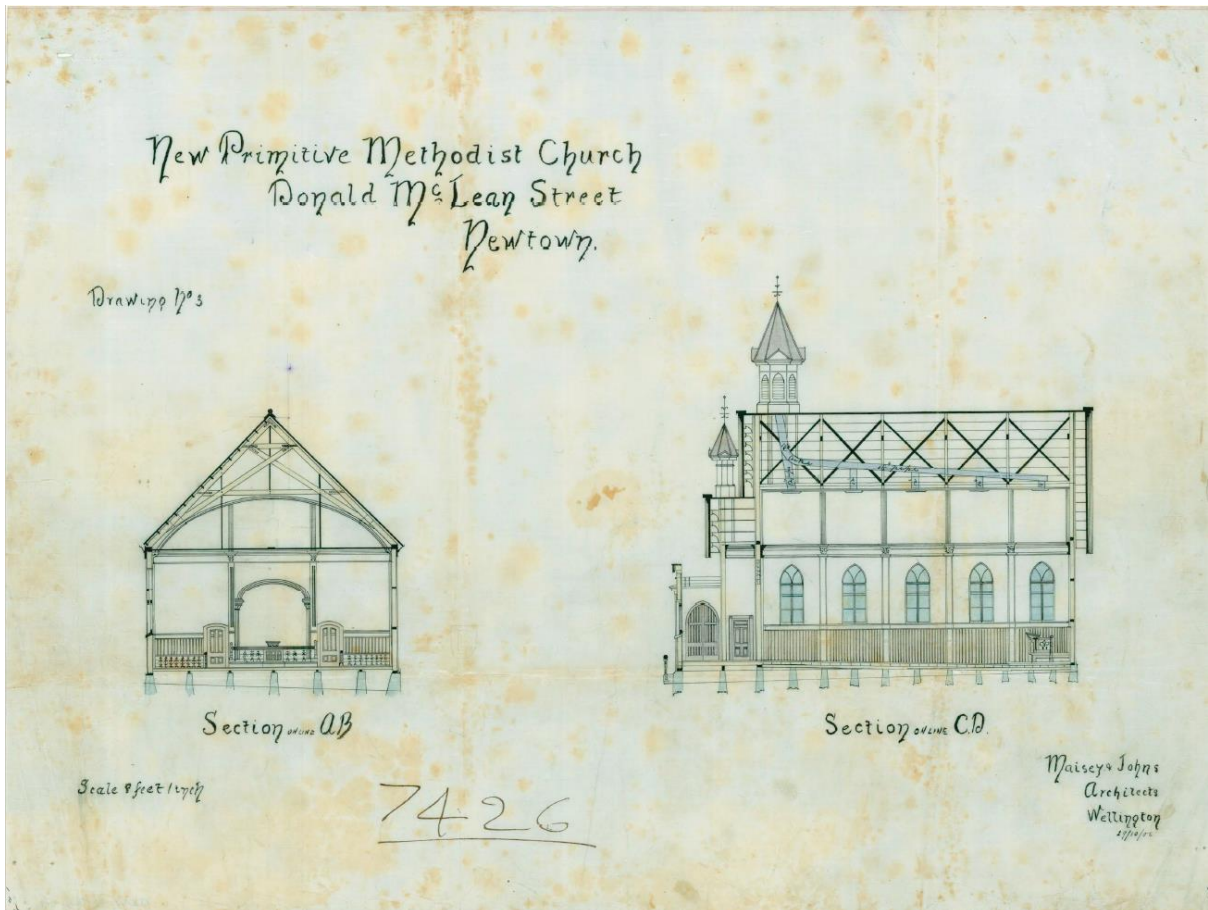 New Primitive Methodist Church
Donald Mc Lean Street
Newtown.
Drawing No 3
Section ON LINE A.B
Section ON LINE C.D.
Scale 8 feet 1 inch
7426
Maisey & Johns
Architects
Wellington